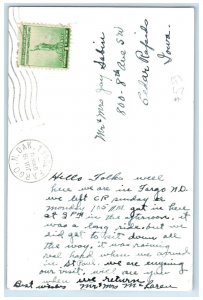 Mr & Mrs Jay Sabin
800-8th Ave SW
Cedar Rapids
Iowa.
$5.95
FARGO, N. DAK.
Hello Folks well
here we are in Fargo N.D.
we left C.R. sunday
monday got in here
at 3 P.M. in the afternoon, it
was a long ride, but we
did get to set down all
the way, it was raining
real hard when we arrived
in St Paul, we are enjoying
our visit, will see you
when we return
Best wishes Mr & Mrs McLaren